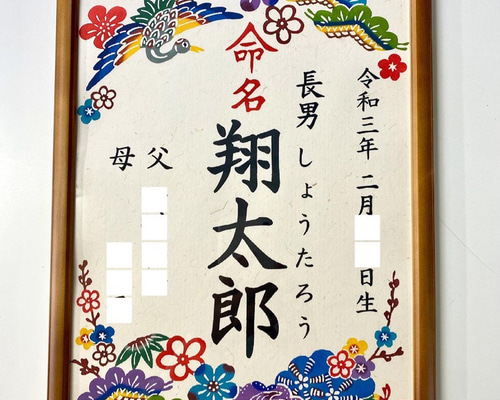 令和三年 二月 日生
長男 しょうたろう
命名
翔太郎
父
母